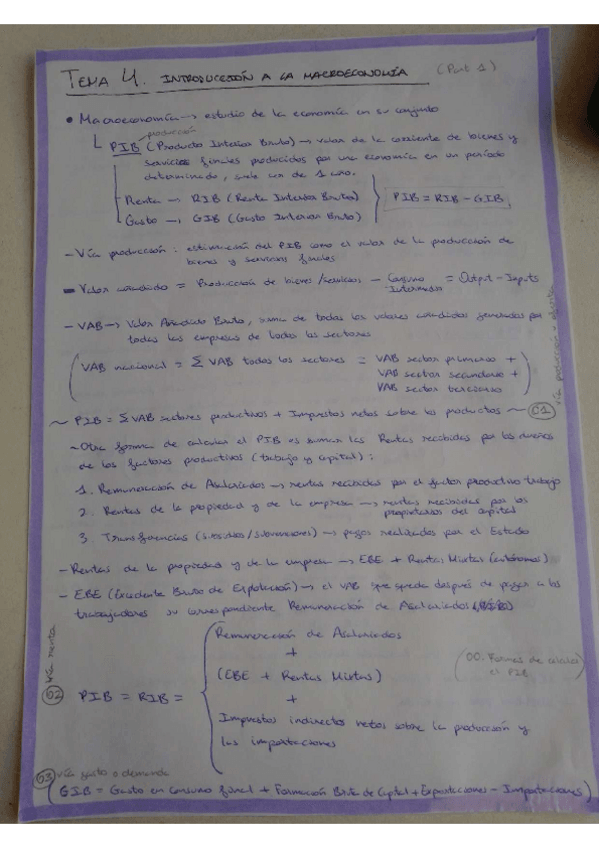 TEMA 4. INTRODUCCIÓN A LA MACROECONOMÍA (Part 1)
• Macroeconomía → estudio de la economía en su conjunto
producción
PIB (Producto Interior Bruto) → valor de la corriente de bienes y
servicios finales producidos por una economía en un período
determinado, suele ser de 1 año.
Renta → RIB (Renta Interior Bruta)
Gasto → GIB (Gasto Interior Bruto)
PIB = RIB - GIB
- Vía producción: estimación del PIB como el valor de la producción de
bienes y servicios finales
- Valor añadido = Producción de bienes/servicios - Consumo Intermedio = Output - Inputs
- VAB → Valor Añadido Bruto, suma de todos los valores añadidos generados por
todas las empresas de todos los sectores
(VAB nacional = Σ VAB todos los sectores = VAB sector primario +
VAB sector secundario +
VAB sector terciario)
vía producción u oferta
~ PIB = Σ VAB sectores productivos + Impuestos netos sobre los productos ~ 01
~ Otra forma de calcular el PIB es sumar las Rentas recibidas por los dueños
de los factores productivos (trabajo y capital):
1. Remuneración de Asalariados → rentas recibidas por el factor productivo trabajo
2. Rentas de la propiedad y de la empresa → rentas recibidas por los
propietarios del capital
3. Transferencias (subsidios/subvenciones) → pagos realizados por el Estado
- Rentas de la propiedad y de la empresa → EBE + Rentas Mixtas (autónomos)
- EBE (Excedente Bruto de Explotación) → el VAB que queda después de pagar a los
trabajadores su correspondiente Remuneración de Asalariados
vía renta
02 PIB = RIB =
Remuneración de Asalariados
+
(EBE + Rentas Mixtas)
+
Impuestos indirectos netos sobre la producción y
las importaciones
(00. Formas de calcular
el PIB)
03 vía gasto o demanda
(GIB = Gasto en consumo final + Formación Bruta de Capital + Exportaciones - Importaciones)